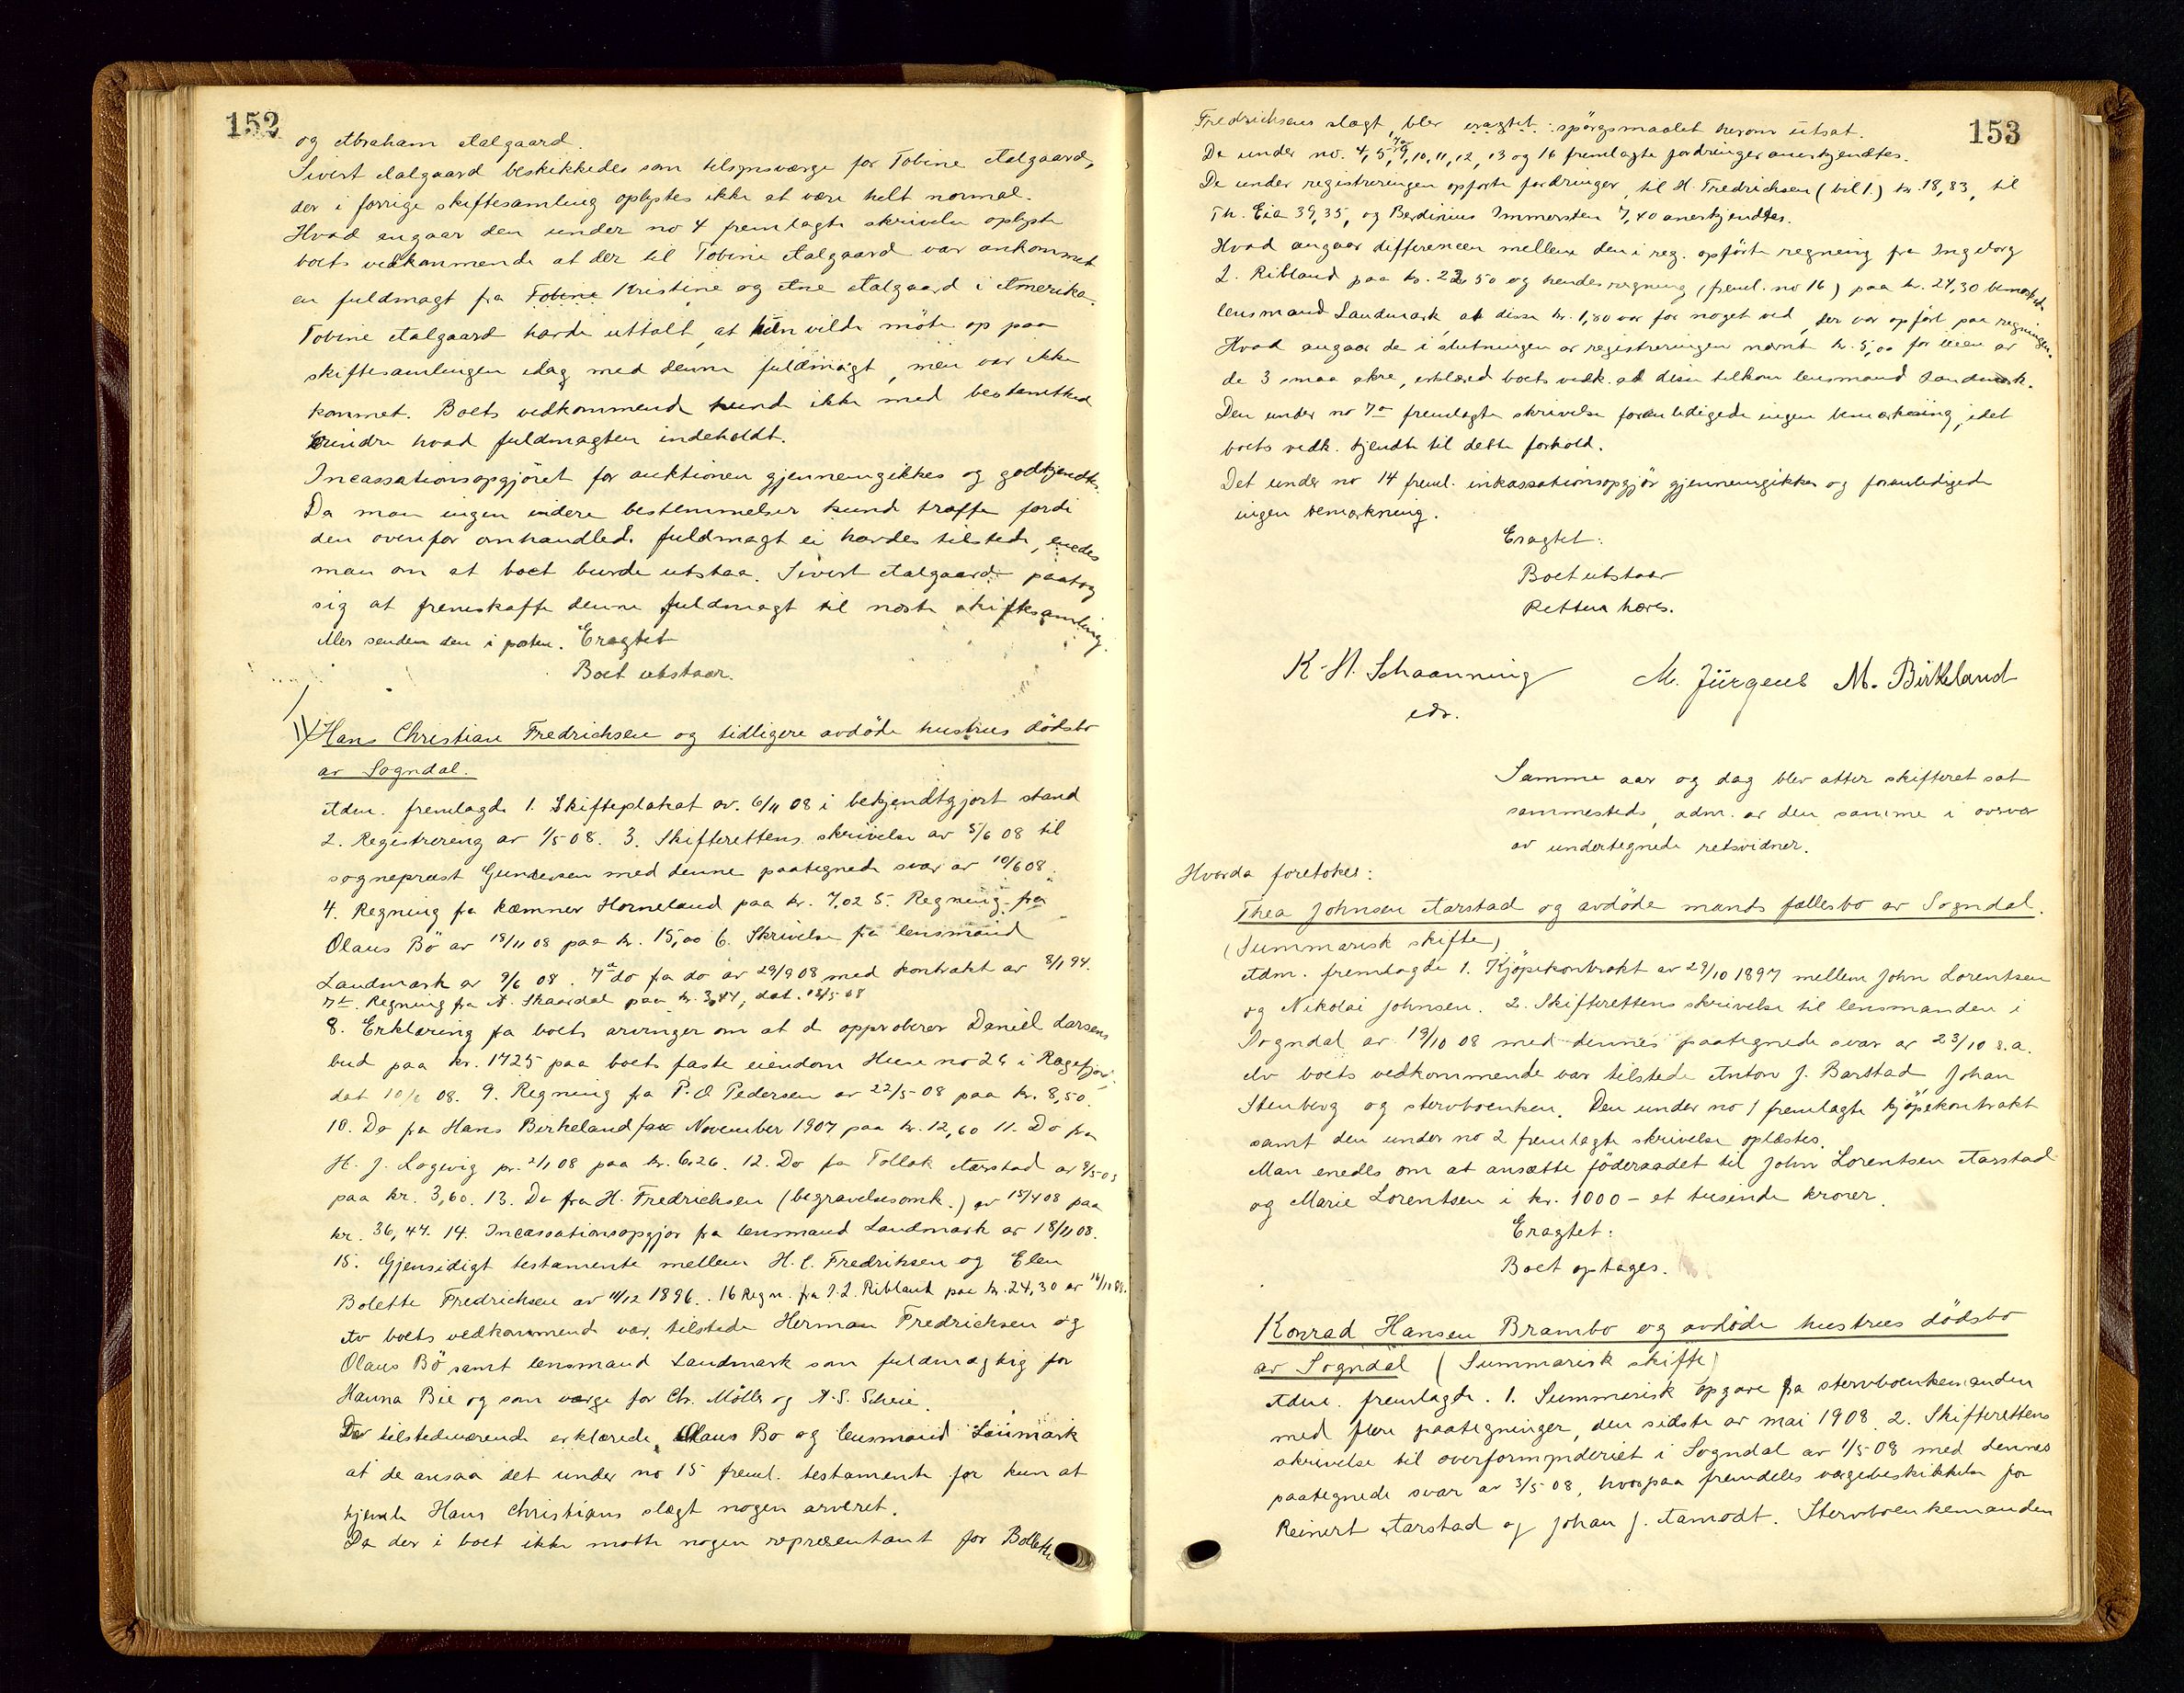 152
og Abraham Aalgaard.
Sivert Aalgaard beskikkedes som tilsynsværge for Tobine Aalgaard,
der i forrige skiftesamling oplystes ikke at være helt normal.
Hvad angaar den under no 4 fremlagte skrivelse oplyste
boets vedkommende at der til Tobine Aalgaard var ankommet
en fuldmagt fra Tobine Kristine og Ane Aalgaard i Amerika.
Tobine Aalgaard havde uttalt, at hun vilde möte op paa
skiftesamlingen idag med denne fuldmagt, men var ikke
kommet. Boets vedkommende kunde ikke med bestemthed
erindre hvad fuldmagten indeholdt.
Incassationsopgjöret for auktionen gjennemgikkes og godkjendtes.
Da man ingen videre bestemmelser kunde træffe fordi
den ovenfor omhandlede fuldmagt ei havdes tilstede, enedes
man om at boet burde utstaa. Sivert Aalgaard paatog
sig at fremskaffe denne fuldmagt til næste skiftesamling
eller sende den i posten. Eragtet
Boet utstaar.
Hans Christian Fredrichsen og tidligere avdöde hustrus dödsbo
av Sogndal.
Adm. fremlagde 1. Skifteplakat av 6/11 08 i bekjendtgjort stand
2. Registrering av 1/5 08. 3. Skifterettens skrivelse av 5/6 08 til
sogneprest Gundersen med denne paategnede svar av 10/6 08.
4. Regning fra kæmner Horneland paa kr. 7,02 5. Regning fra
Olaus Bö av 18/11 08 paa kr. 15,00 6. Skrivelse fra lensmand
Landmark av 9/6 08. 7a do fa do av 29/9 08 med kontrakt av 8/1 94.
7b. Regning fra A. Skaardal paa kr. 3,44, dat. 18/5 08
8. Erklæring fra boets arvinger om at de approberer Daniel Larsens
bud paa kr. 1725 paa boets faste eiendom Huse no 26 i Ragefjord
dat 10/6 08. 9. Regning fra P. O Pedersen av 22/5 08 paa kr. 8,50.
10. Do fra Hans Birkeland November 1907 paa kr. 12,60 11. Do fra
H. J. Logevig pr. 2/1 08 paa kr. 6,26. 12. Do fra Tollak Aarstad av 9/5 08
paa kr. 3,60. 13. Do fra H. Fredrichsen (begravelsesomk.) av 15/4 08 paa
kr. 36,47. 14. Incassationsopgjör fra lensmand Landmark av 18/11 08.
15. Gjensidigt testamente mellem H. C. Fredriksen og Elen
Bolette Fredrichsen av 11/12 1896. 16 Regn. fra I. L. Ribland paa kr. 24,30 av 16/11 08.
Av boets vedkommende var tilstede Herman Fredricksen og
Olaus Bö samt lensmand Landmark som fuldmægtig for
Hanna Bie og som værge for Chr. Möller og A. S. Scheie.
De tilstedeværende erklærede, Olaus Bo og lensmand Landmark
at de ansaa det under no 15 freml. testamente for kun at
kjende Hans Christians slægt nogen arveret.
Da der i boet ikke mötte nogen representant for Bolette
153
Fredrichsens slægt, blev eragtet: spörgsmaalet herom utsat.
De under no. 4, 5, 7a 9, 10, 11, 12, 13 og 16 fremlagte fordringer anerkjendtes.
De under registreringen opförte fordringer, til H. Fredrichsen (bil 1.) kr. 18,83, til
Th. Eia 39,35, og Berdinius Immersten 7,40 anerkjendtes.
Hvad angaar differencen mellem den i reg. opförte regning fra Ingeborg
L. Ribland paa kr. 22,50 og hendes regning (freml. no 16) paa kr. 24,30 bemærkede
lensmand Landmark, at disse kr. 1,80 var for noget ved, der var opfört paa regningen.
Hvad angaar de i slutningen av registreringen nævnte kr. 5,00 for leien av
de 3 smaa akre, erklæred boets vedk. at disse tilkom lensmand Landmark.
Den under no 7a fremlagte skrivelse foranledigede ingen bemærkning, idet
boets vedk. kjendte til dette forhold.
Det under no 14 freml. inkassationsopgjör gjennemgikkes og foranledigede
ingen bemærkning.
Eragtet:
Boet utstaar
Retten hæves.
K. H. Schaanning
edr.
M. Jürgens M. Birkeland
Samme aar og dag blev atter skifteret sat
sammesteds, adm. av den samme i overvær
av undertegnede retsvidner.
Hvorda foretokes:
Thea Johnsen Aarstad og avdöde mands fællesbo av Sogndal.
(Summarisk skifte)
Adm. fremlagde 1. Kjöpekontrakt av 29/10 1897 mellem John Lorentsen
og Nikolai Johnsen. 2. Skifterettens skrivelse til lensmanden i
Sogndal av 19/10 08 med dennes paategnede svar av 23/10 s.a.
Av boets vedkommende var tilstede Anton J. Barstad Johan
Stenberg og stervboenken. Den under no 1 fremlagte kjöpekontrakt
samt den under no 2 fremlagte skrivelse oplæstes.
Man enedes om at ansætte föderaadet til John Lorentsen Aarstad
og Marie Lorentsen i kr. 1000 - et tusinde kroner.
Eragtet:
Boet optages.
Konrad Hansen Brambo og avdöde hustrus dödsbo
av Sogndal (Summarisk skifte)
Adm. fremlagde. 1. Summarisk opgave fra stervboenkemanden
med flere paategninger, den sidste av mai 1908. 2. Skifterettens
skrivelse til overformynderiet i Sogndal av 1/5 08 med dennes
paategnede svar av 3/5 08, hvorpaa fremdeles værgebeskikkelse for
Reinert Aarstad og Johan J. Aamodt. Stervboenkemanden